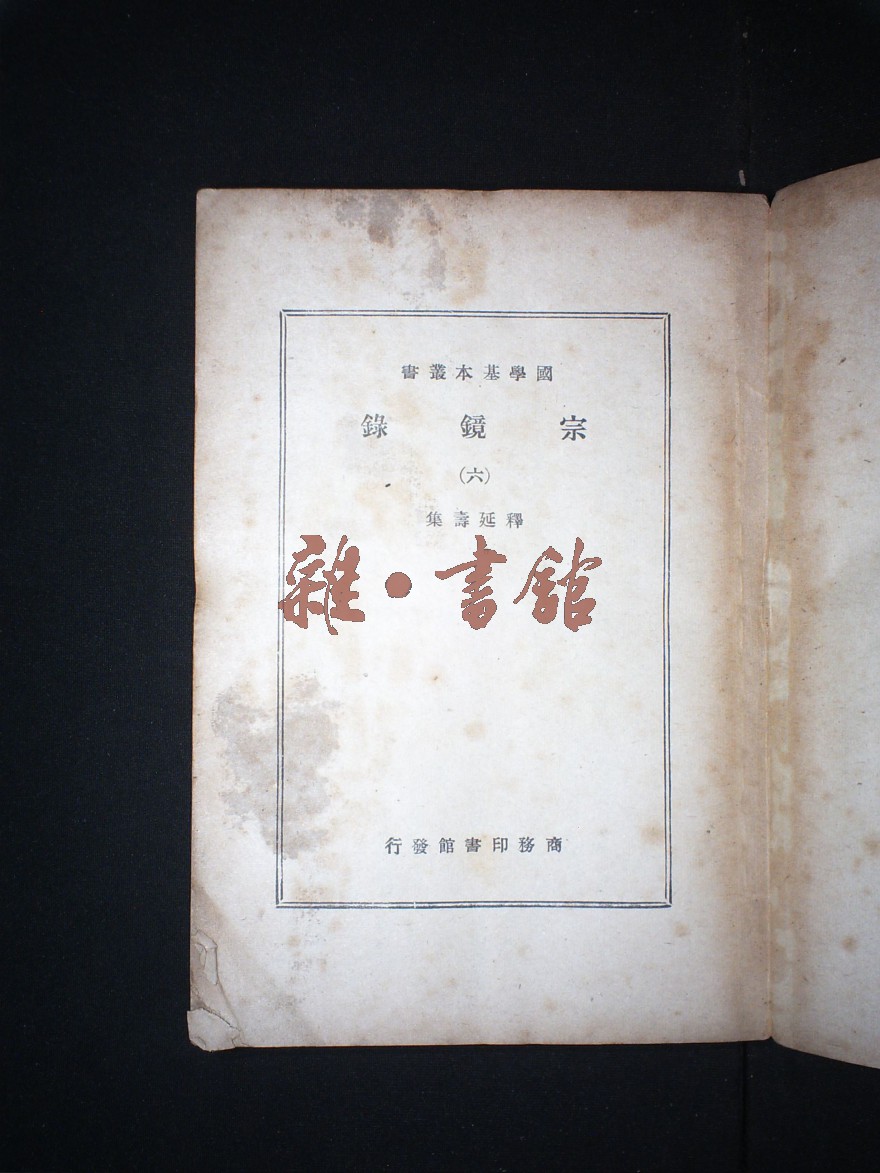 國學基本叢書
宗鏡錄
(六)
釋延壽集
雜·書館
商務印書館發行